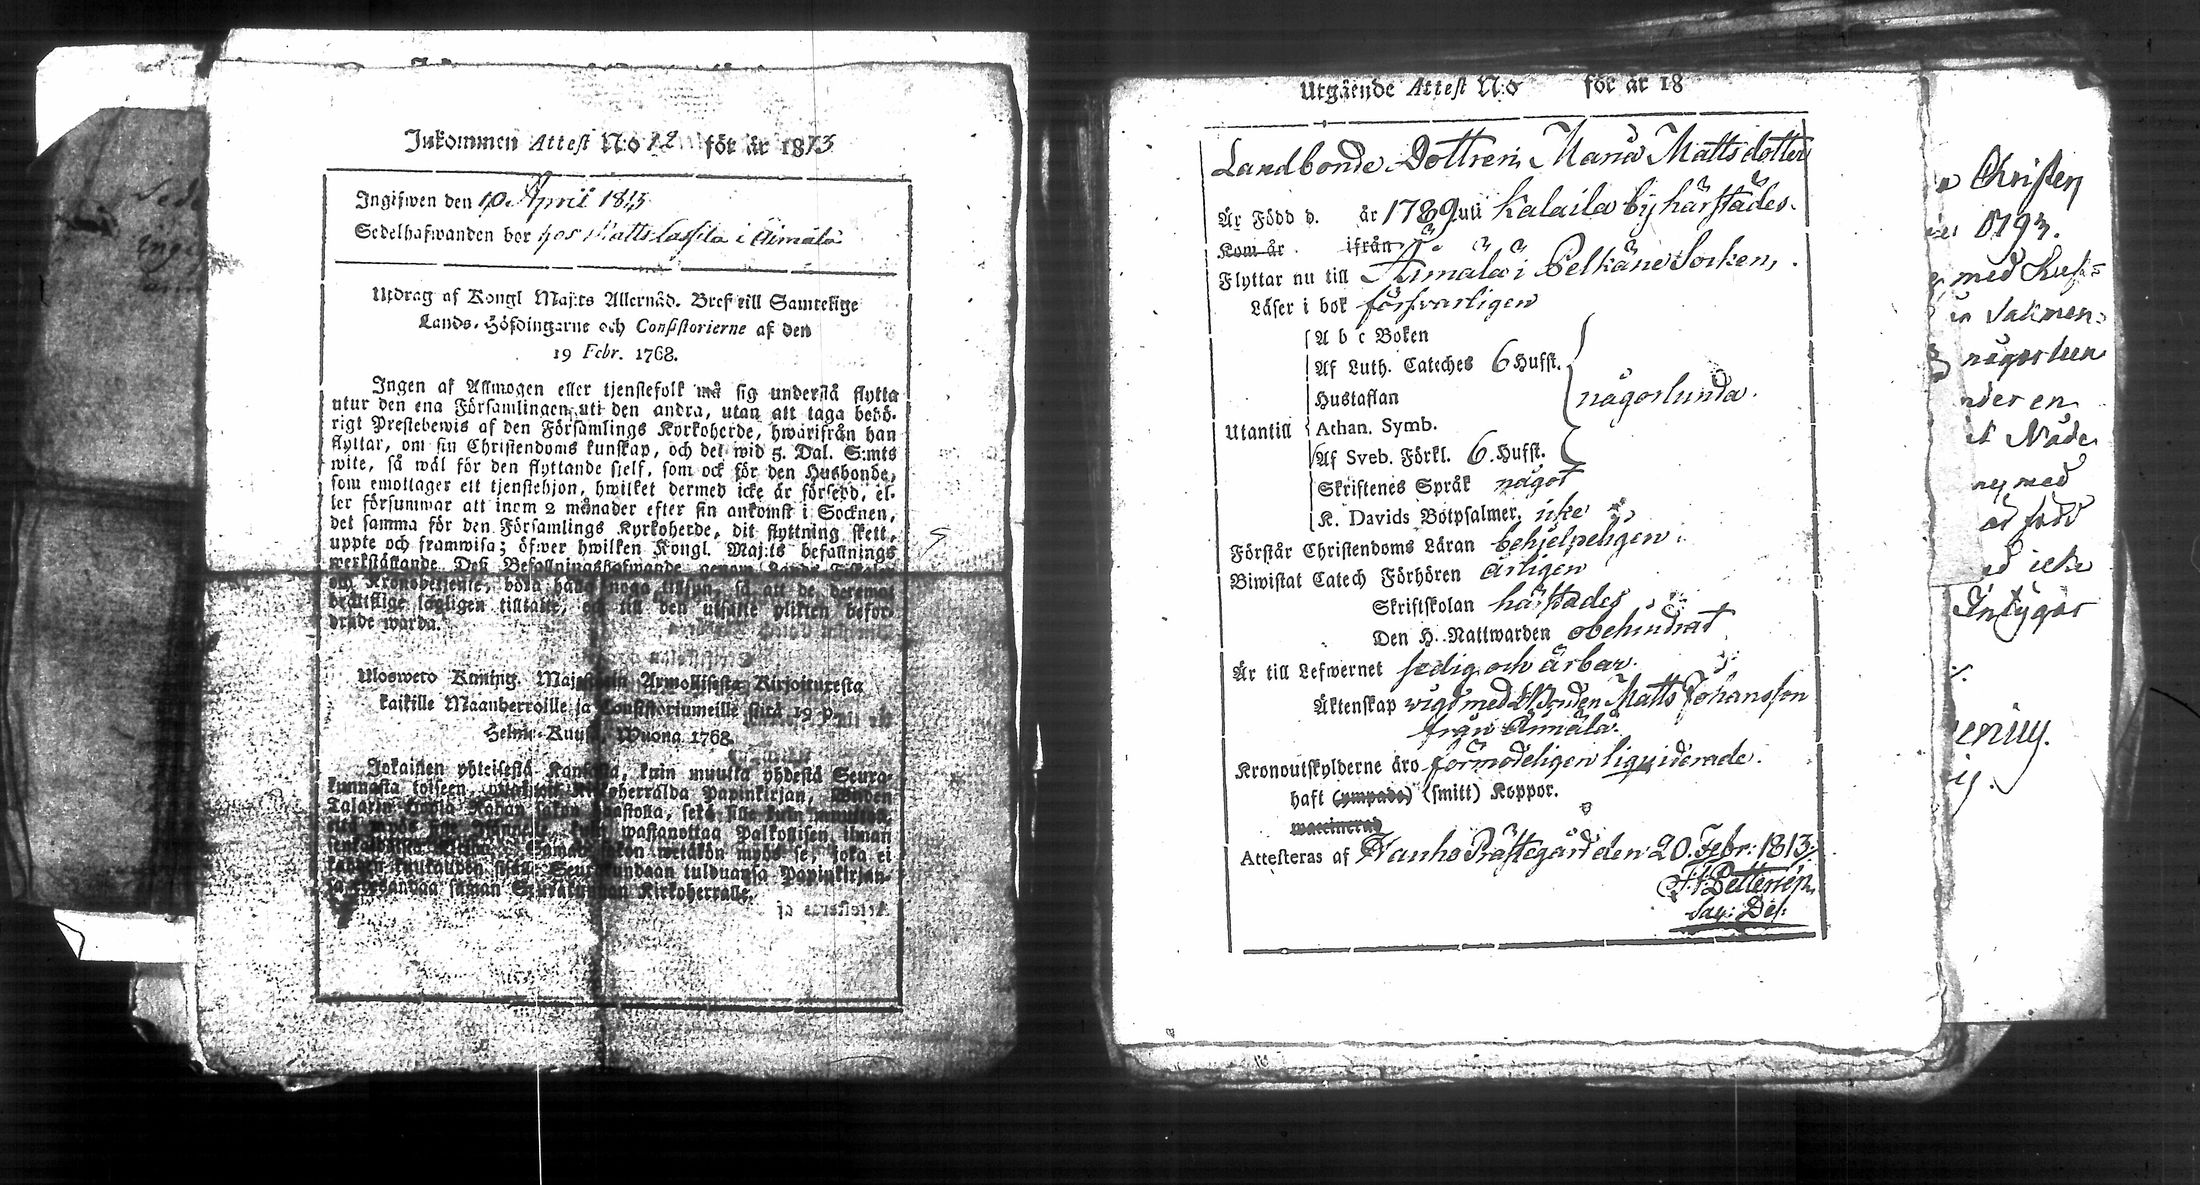 Inkommen Attest N:o 12 för år 1813
Ingifwen den 10 April 1813
Sedelhafwanden bor hos Matts Lassila i Äimälä
Utdrag af Kongl Maj:ts Allernåd. Bref till Samtelige
Lands-Höfdingarne och Consistorierne af den
19 Febr. 1768.
Ingen af Allmogen eller tjenstefolk må sig understå flytta
utur den ena Församlingen uti den andra, utan att taga behö-
rigt Prestebewis af den Församlings Kyrkoherde, hwarifrån han
flyttar, om sin Christendoms kunskap, och det wid 5. Dal. S:mts
wite, så wäl för den flyttande sjelf, som ock för den Husbonde,
som emottager ett tjenstehjon, hwilket dermed icke är försedd, el-
ler försummar att inom 2 månader efter sin ankomst i Socknen,
det samma för den Församlings Kyrkoherde, dit flyttning skett,
uppte och framwisa; öfwer hwilken Kongl. Maj:ts befallnings
werkställande Dess Befallningshafwande genom Lands
och Kronobetjente, böra hafwa noga tillsyn, så att de deremot
brottslige lagligen tilltalte, och till den utsatte plikten befor-
drade warda.
Ulosweto Kuning. Majestetin Armollisesta Kirjoituxesta
kaikille Maanherroille ja Consistoriumeille siitä 19 p.
Helmi-Kuusa, Wuona 1768.
Jokainen yhteisestä Kansasta, kuin muutta yhdestä Seura-
kunnasta toiseen, Kirkoherralda Papinkirjan,
Talarin Rahan sakon
wastanottaa Palkollisen ilman
sakon wetäkön myös se, joka ei
kahden kuukauden Seurakundaan tulduansa Papinkirjan-
saman Seurakunnan Kirkoherralle.
Utgående Attest N:o för år 18
Landbonde Dottren Maria Mattsdotter
Är Född d. år 1789 uti Kalaila by härstädes.
Kom år ifrån
Flyttar nu till Äimälä i Pelkäne Socken,
Läser i bok försvarligen
A b c Boken
Af Luth. Cateches 6 Hufst.
Hustaflan någorlunda.
Utantill Athan. Symb.
Af Sveb. Förkl. 6. Hufst.
Skriftenes Språk något
K. Davids Botpsalmer, icke
Förstår Christendoms Läran behjelpeligen.
Biwistat Catech Förhören årligen
Skriftskolan härstädes
Den H. Nattwarden obehindrat
Är till Lefwernet sedig och ärbar.
Äktenskap wigd med Matts Johansson
från Äimälä.
Kronoutskylderne äro förmodeligen liquiderade.
haft (ympade) (smitt) Koppor.
waccinerad
Attesteras af Hauho Prästegård den 20. Febr. 1813.
Sac: Del.
Christen
1793.
med
någorlun
der en
Nåde
med
född
icke
Intygar